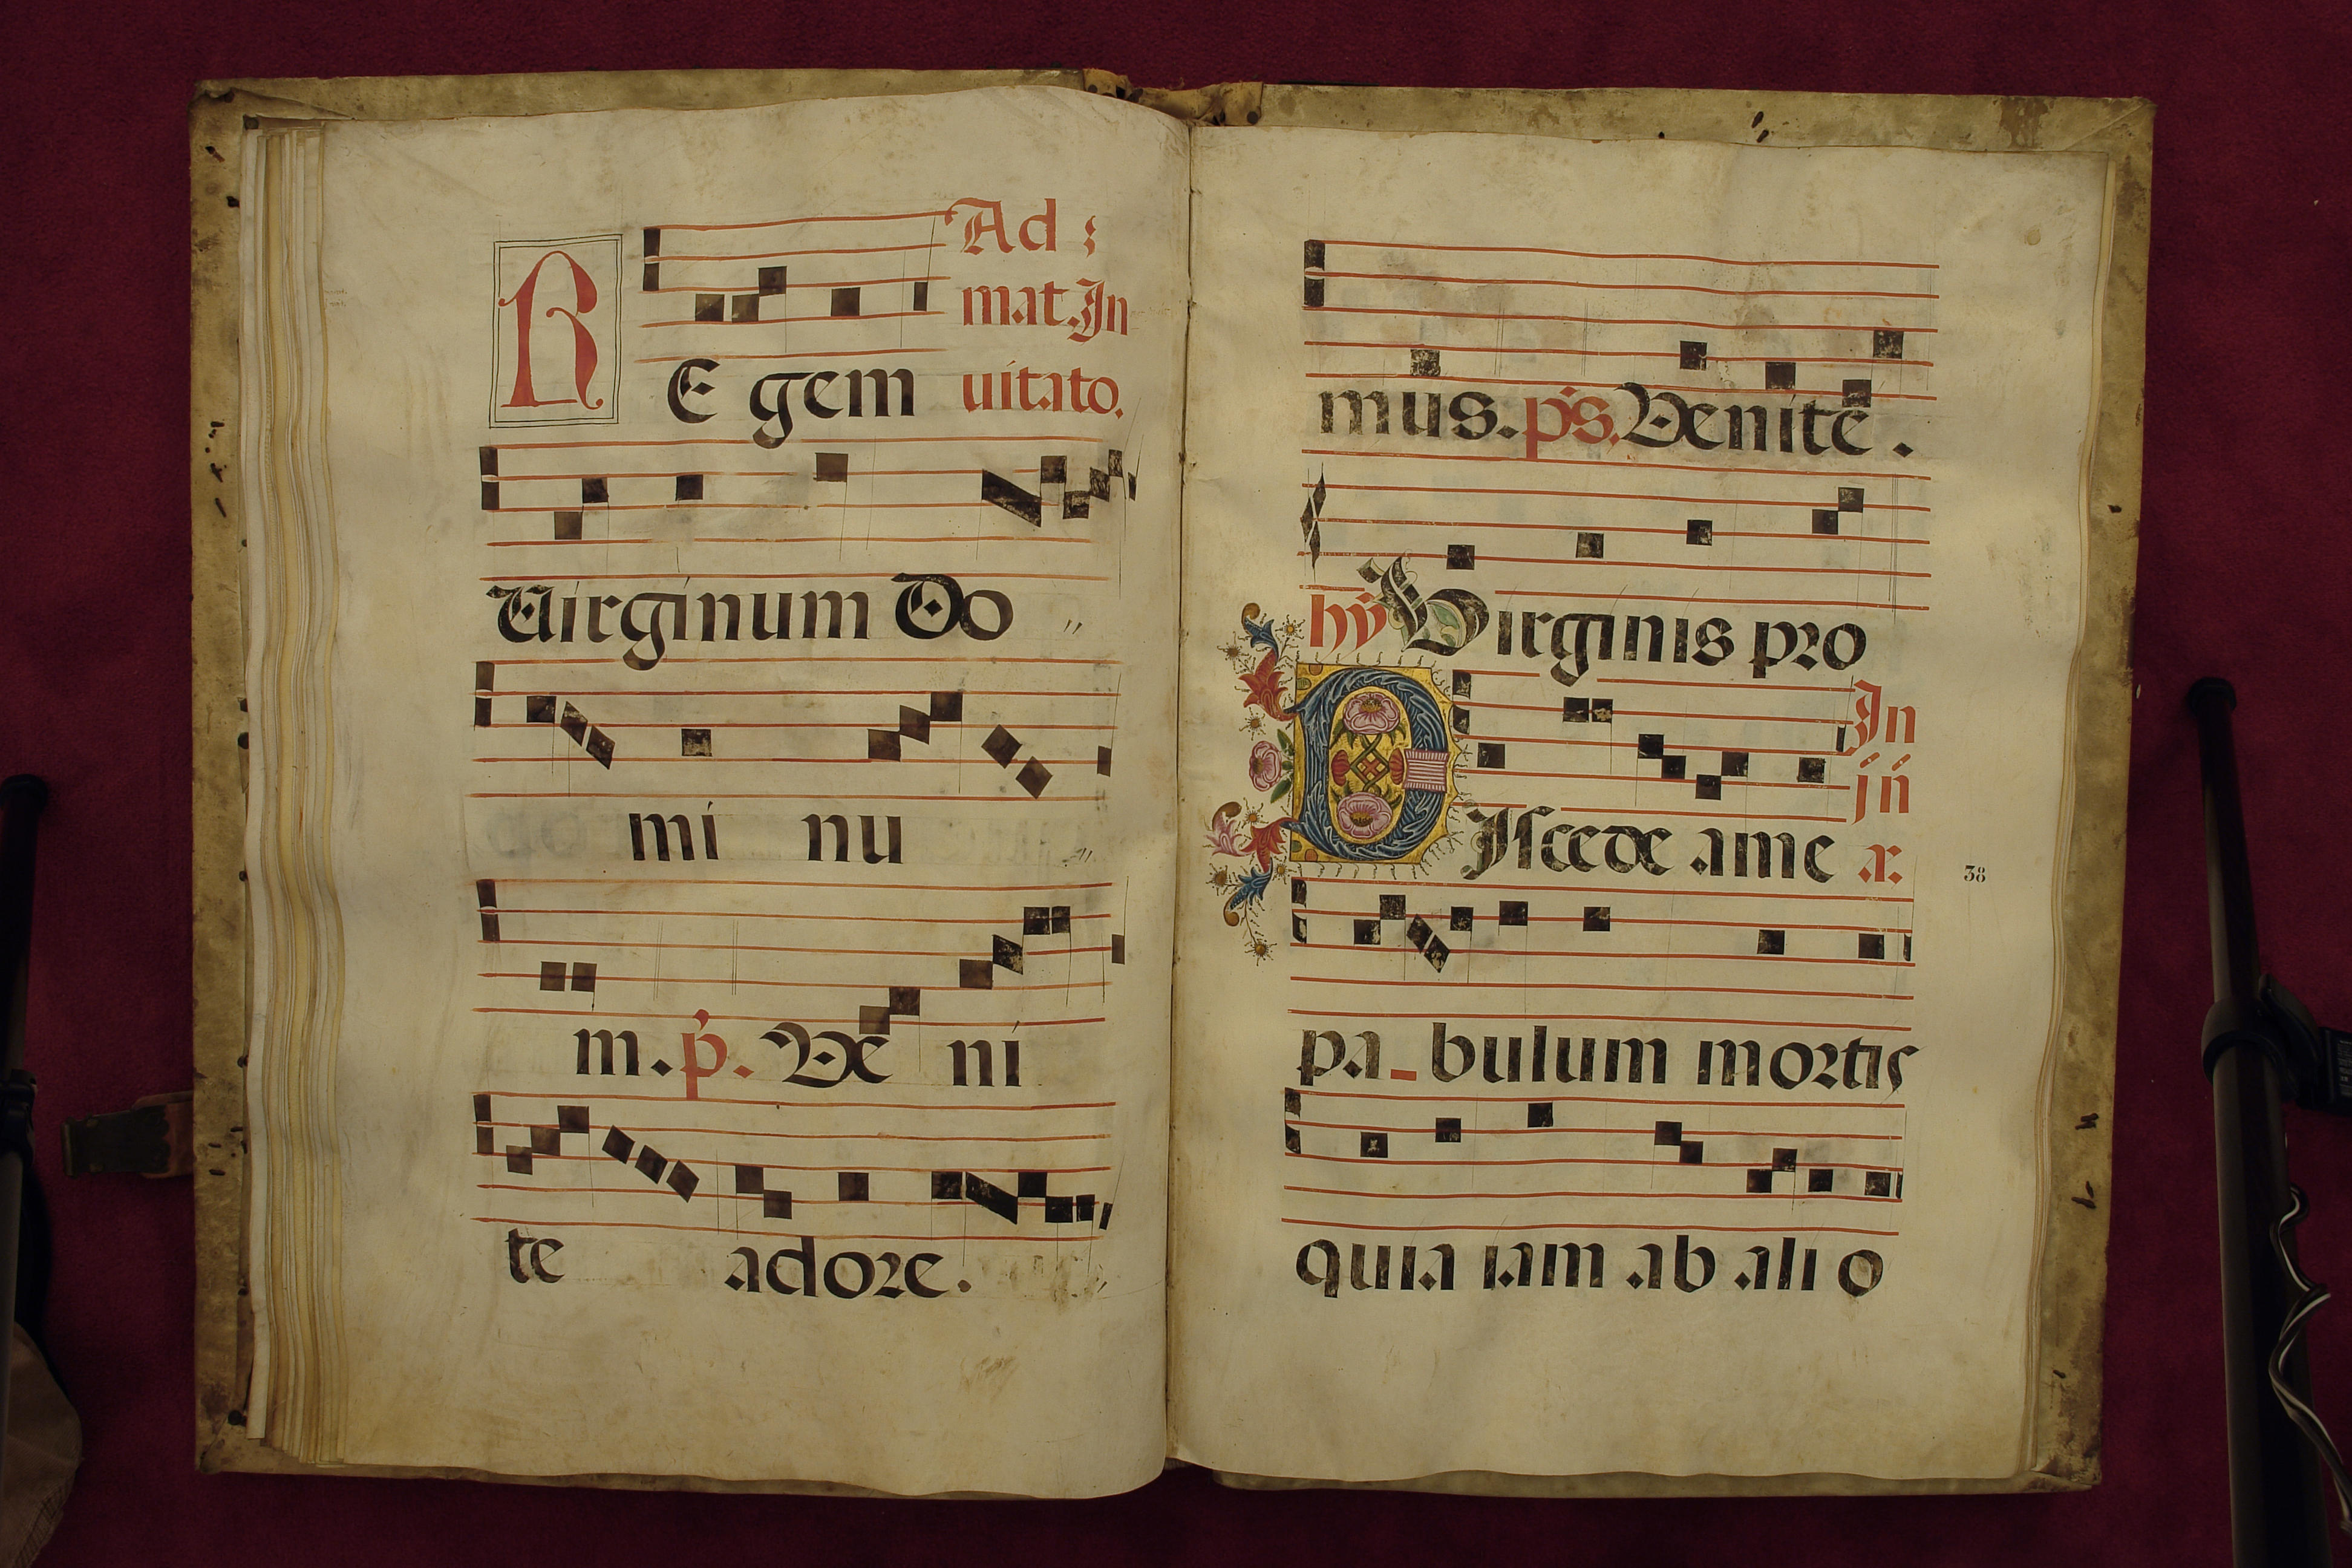 Ad
mat. In
R E gem uitato.
Uirginum Do
mi nu
m. p. Ve ni
te adore.
mus. ps. Venite.
hy Virginis pro
In
jn
D Iscede a me x.
38
pa_bulum mortis
quia iam ab ali o